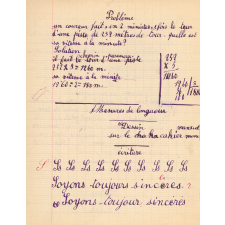 Problème
un coureur fait en 2 minutes, 5 fois le tour
d'une piste de 252 mètres de tour. quelle est
sa vitesse à la minute?
Solution
il fait le tour d'une piste
252 X 5 = 1260 m.
sa vitesse à la minute
1260 : 2 = 630 m.
252
X 5
1260
Mesures de longueur
Dessin
mensuel
sur le cahier
écriture
Ss Ss Ss Ss Ss Ss Ss Ss
Soyons toujours sincères.
Soyons toujour sincères